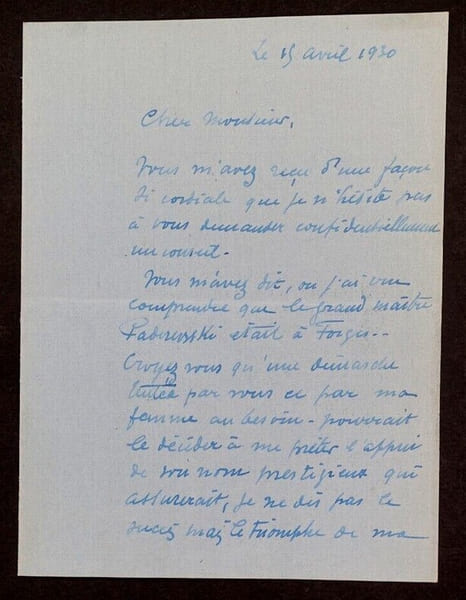 Le 15 avril 1930
Cher Monsieur,
Vous m'avez reçu d'une façon
si cordiale que je n'hésite pas
à vous demander confidentiellement
un conseil.
Vous m'avez dit, ou j'ai cru
comprendre que le grand maître
Paderewski était à Forges--
Croyez vous qu'une démarche
tentée par vous et par ma
femme au besoin - pourrait
le décider à me prêter l'appui
de son nom prestigieux qui
assurerait, je ne dis pas le
succès mais le triomphe de ma